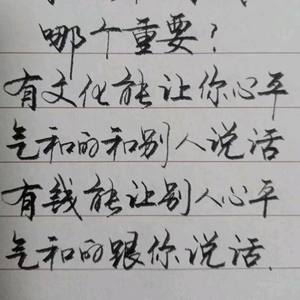 哪个重要?
有文化能让你心平
气和的和别人说话
有钱能让别人心平
气和的跟你说话.